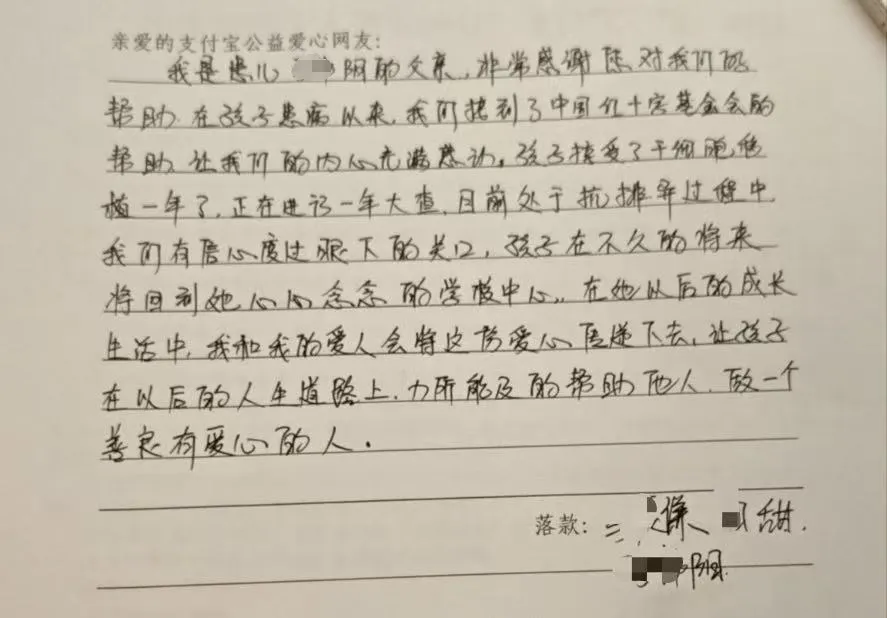 亲爱的支付宝公益爱心网友:
我是患儿 阳的父亲,非常感谢您对我们的
帮助.在孩子患病以来,我们接到了中国红十字基金会的
帮助.让我们的内心充满感动。孩子接受了干细胞移
植一年了,正在进行一年大查,目前处于抗排异过程中,
我们有信心度过眼下的关口,孩子在不久的将来
将回到她心心念念的学校中心。在她以后的成长
生活中,我和我的爱人会将这份爱心传递下去,让孩子
在以后的人生道路上,力所能及的帮助他人,做一个
善良有爱心的人。
落款: 甜.
阳.